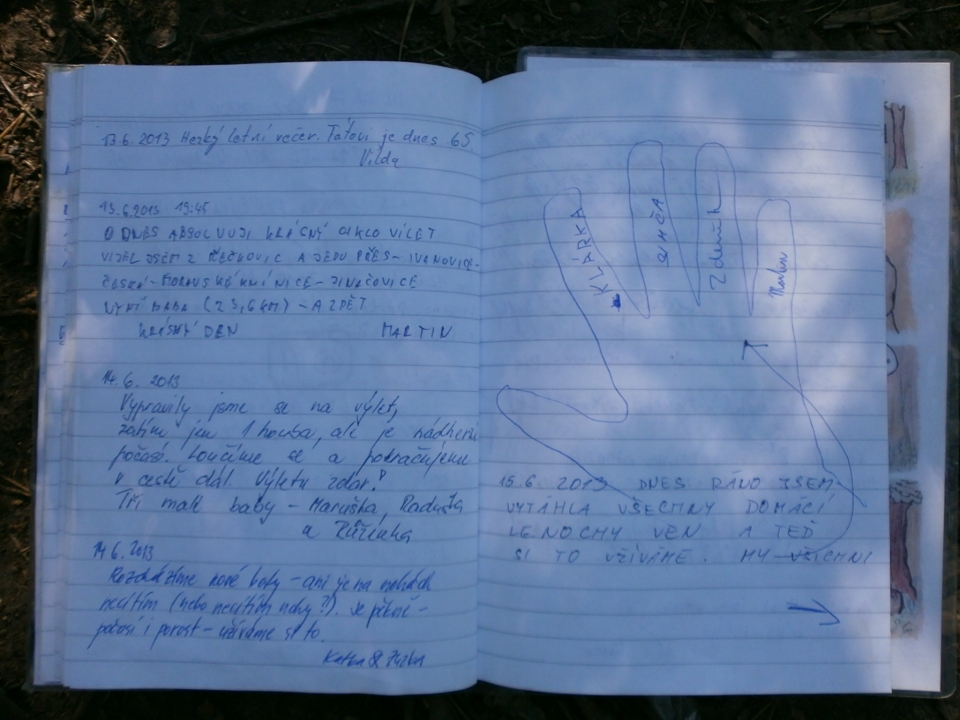 13.6.2013 Hezký letní večer. Taťovi je dnes 65.
Vilda
13.6.2013 19:45
DNES ABSOLVUJI KRÁSNÝ CIKLO VÍLET
JSEM Z ŘEČKOVIC A JEDU PŘES - IVANOVICE -
ČESKÁ - MORAVSKÉ KNÍNICE - JINAČOVICE
BABA (23,6 KM) - A ZPĚT
KRÁSNÝ DEN MARTIN
14.6. 2013
Vypravily jsme se na výlet,
zatím jen 1 houba, ale je nádherné
počasí. Loučíme se a pokračujeme
v cestě dál. Výletu zdar!
Tři malé baby - Maruška, Raduška
a Růženka
14.6.2013
nové boty - ani je na nohách
necítím (nebo necítím nohy?). Je pěkně -
počasí i porost - užíváme si to.
Katka &
KLÁRKA
Zdeněk
15.6. 2013 DNES RÁNO JSEM
VYTÁHLA VŠECHNY DOMÁCÍ
LENOCHY VEN A TEĎ
SI TO UŽÍVÁME. MY VŠICHNI